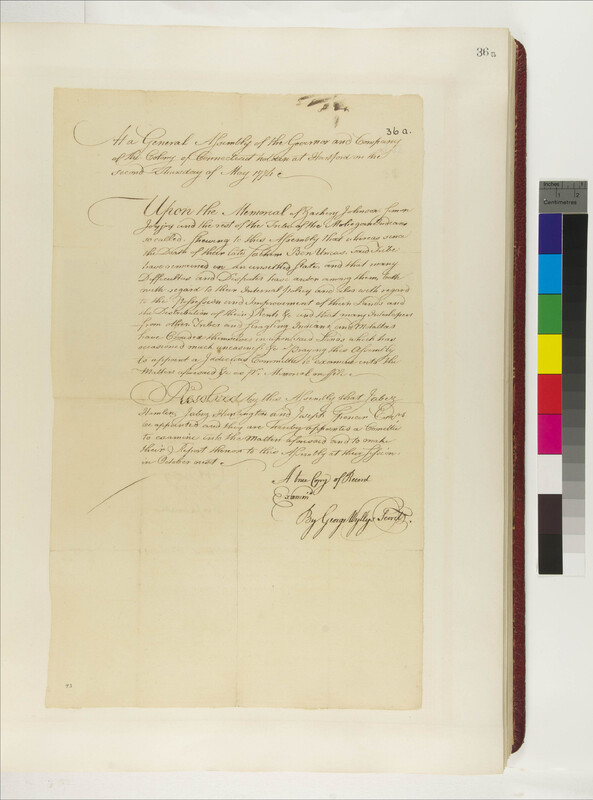 36 a
36 a.
At a General Assembly of the Governor and Company
of the Colony of Connecticut holden at Hartford on the
second Thursday of May 1774.
Upon the Memorial of Zachery Johnson Simon
Joyjoy and the rest of the Tribe of the Mohegan Indians
so called, shewing to this Assembly that always since
the Death of their late Sachem Ben Uncas, said Tribe
have remained in an unsettled State and that many
Difficulties and Disputes have arisen among them both
with regard to their Internal Policy and also with regard
to the Possession and Improvement of their Lands and
the Distribution of their Rents &c and that many Interlopers
from other Tribes and straggling Indians and Molattas
have themselves in upon said Tribe which has
occasioned much uneasiness &c Praying this Assembly
to appoint a Judicious Committee to examine into the
Matters aforesaid &c as pr. Memorial on file.
Resolved by this Assembly that Jabez
Hamlin, Jabez Huntington and Joseph Spencer Esqrs
be appointed and they are hereby appointed a Committee
to examine into the Matters aforesaid and to make
their Report thereon to this Assembly at their Session
in October next.
A true Copy of Record
Examind
By George Wyllys Secrety.
Inches
1
2
Centimetres